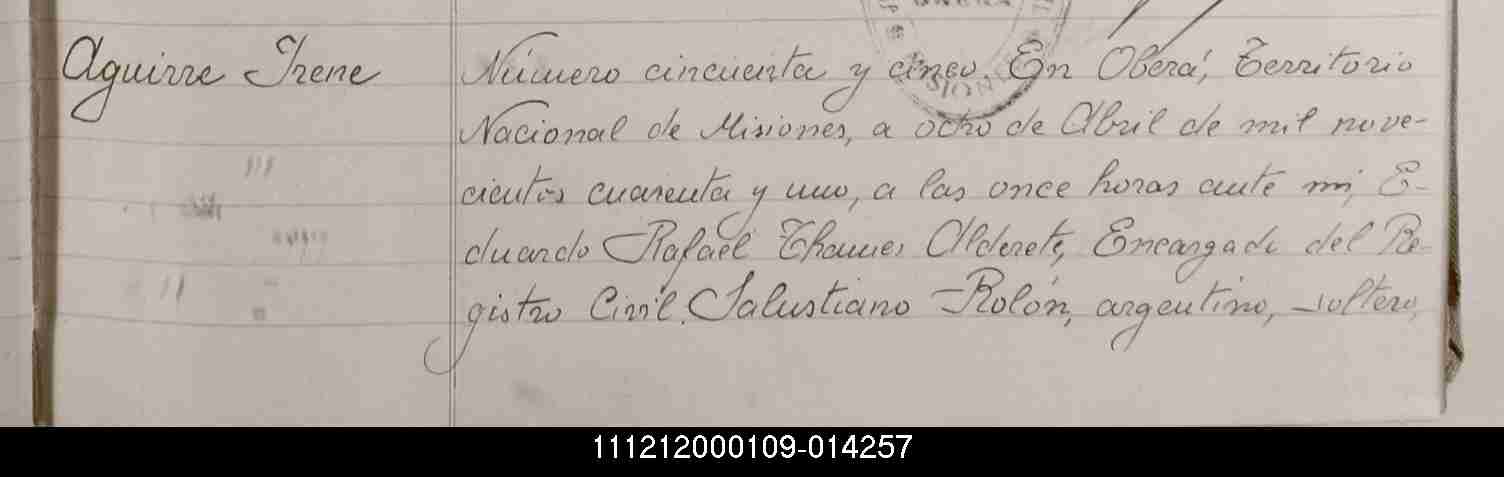 Aguirre Irene
Número cincuenta y cinco En Oberá, Territorio
Nacional de Misiones, a ocho de Abril de mil nove-
cientos cuarenta y uno, a las once horas ante mi, E-
duardo Rafael Thames Alderete, Encargado del Re-
gistro Civil, Salustiano Rolón, argentino, soltero,
111212000109-014257